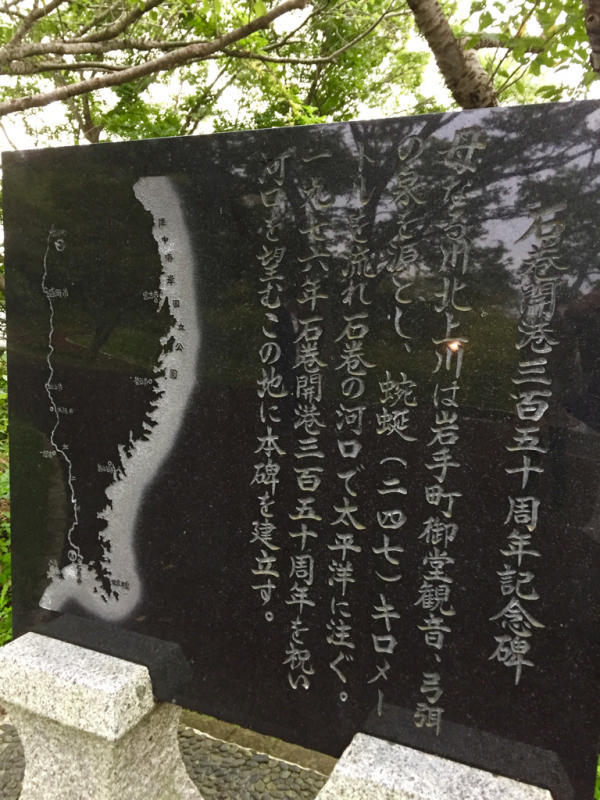 石巻開港三百五十周年記念碑
母なる川北上川は岩手町御堂観音、弓弭
の泉を源とし、蜿蜒(二四七)キロメー
トルを流れ石巻の河口で太平洋に注ぐ。
一九七六年石巻開港三百五十周年を祝い
河口を望むこの地に本碑を建立す。
陸中海岸国立公園